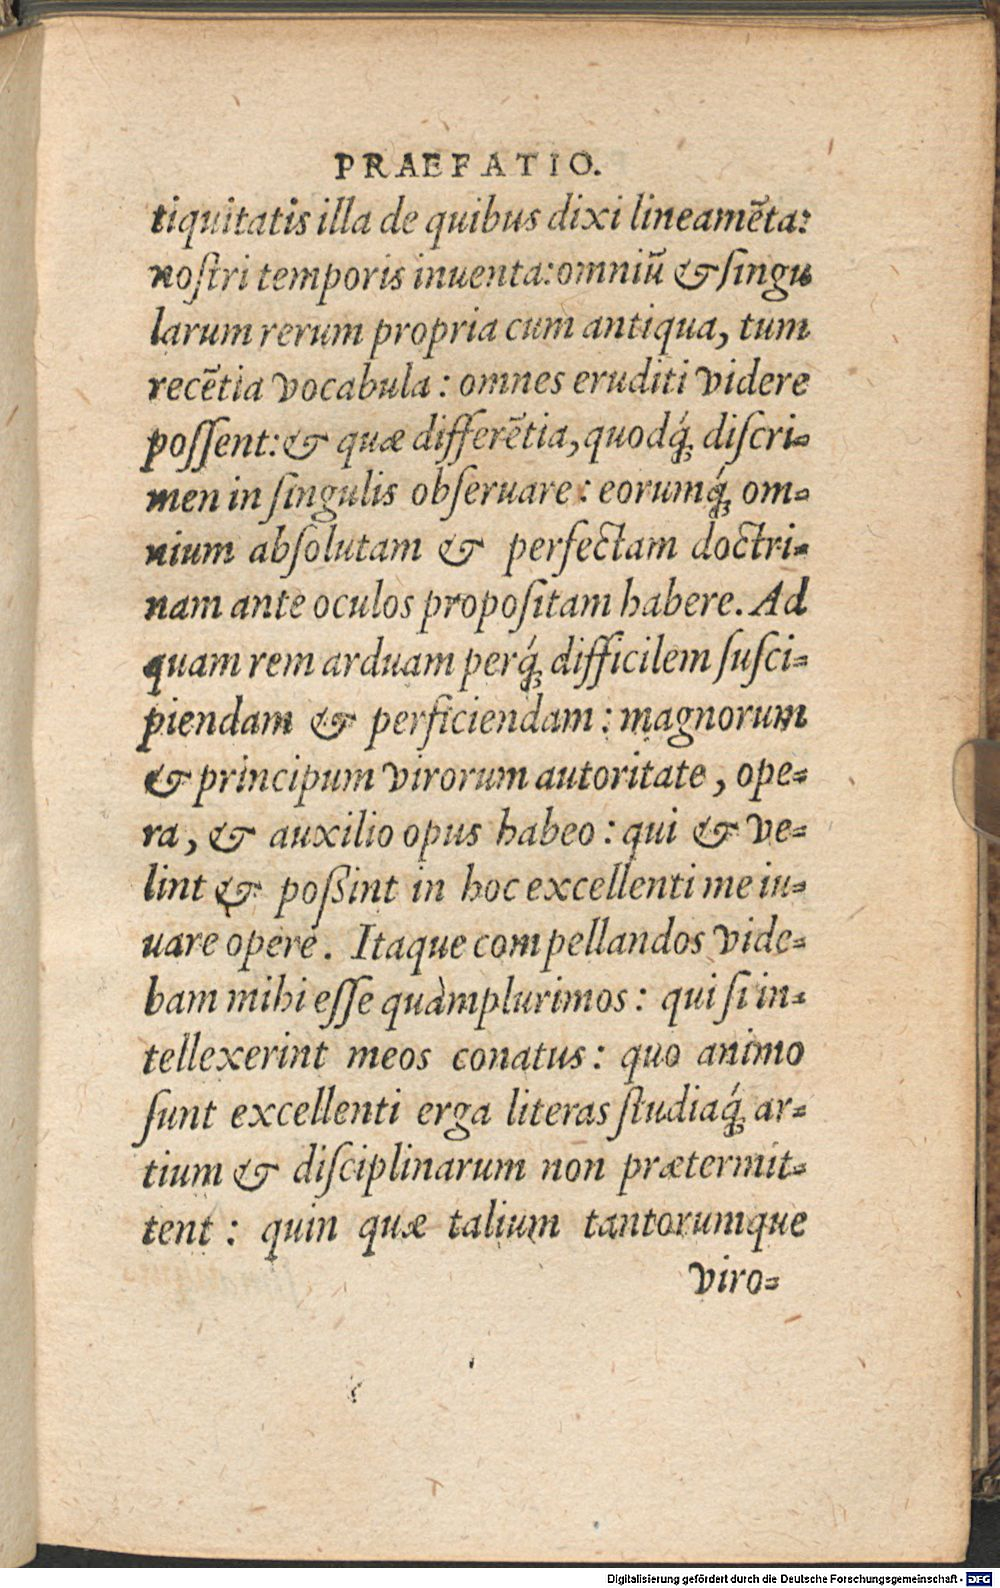 PRAEFATIO.
tiquitatis illa de quibus dixi lineamẽta:
noſtri temporis inuenta: omniũ & ſingu
larum rerum propria cum antiqua, tum
recẽtia vocabula: omnes eruditi videre
poſſent: & quæ differẽtia, quodq́; diſcri-
men in ſingulis obſeruare: eorumq́; om-
nium abſolutam & perfectam doctri-
nam ante oculos propoſitam habere. Ad
quam rem arduam perq́; difficilem ſuſci-
piendam & perficiendam: magnorum
& principum virorum autoritate, ope-
ra, & auxilio opus habeo: qui & ve-
lint & poßint in hoc excellenti me iu-
uare opere. Itaque compellandos vide-
bam mihi eſſe quàmplurimos: qui ſi in-
tellexerint meos conatus: quo animo
ſunt excellenti erga literas ſtudiaq́; ar-
tium & diſciplinarum non prætermit-
tent: quin quæ talium tantorumque
viro-
Digitalisierung gefördert durch die Deutsche Forschungsgemeinschaft - DFG